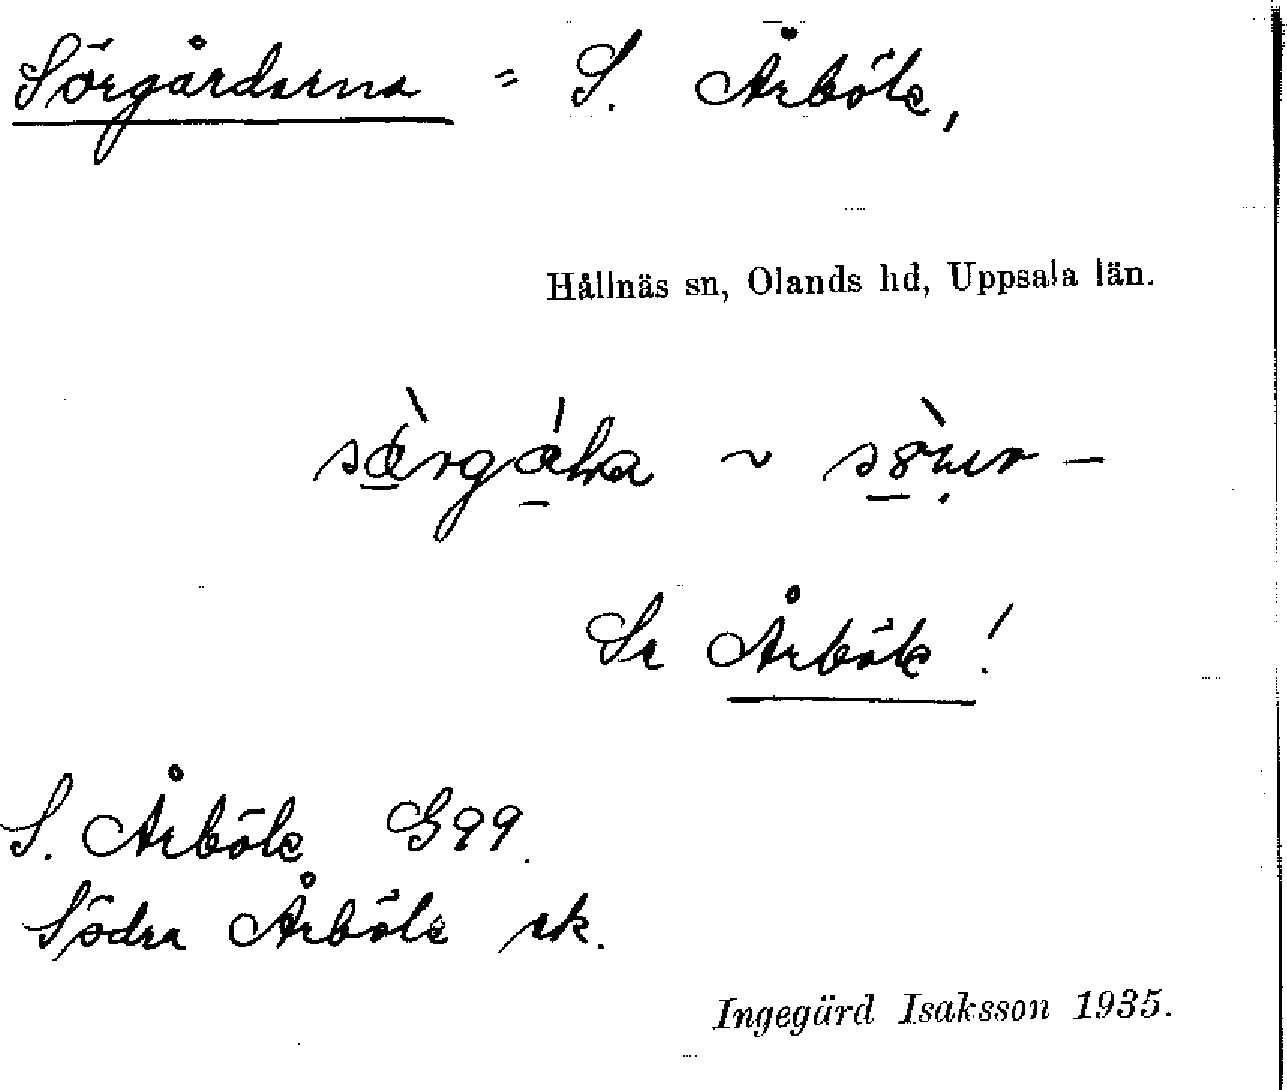 Sörgårdarna = S. Årböle,
Hållnäs sn, Olands hd, Uppsala län.
~
Se Årböle!
S. Årböle G99.
Södra Årböle rk.
Ingegärd Isaksson 1935.